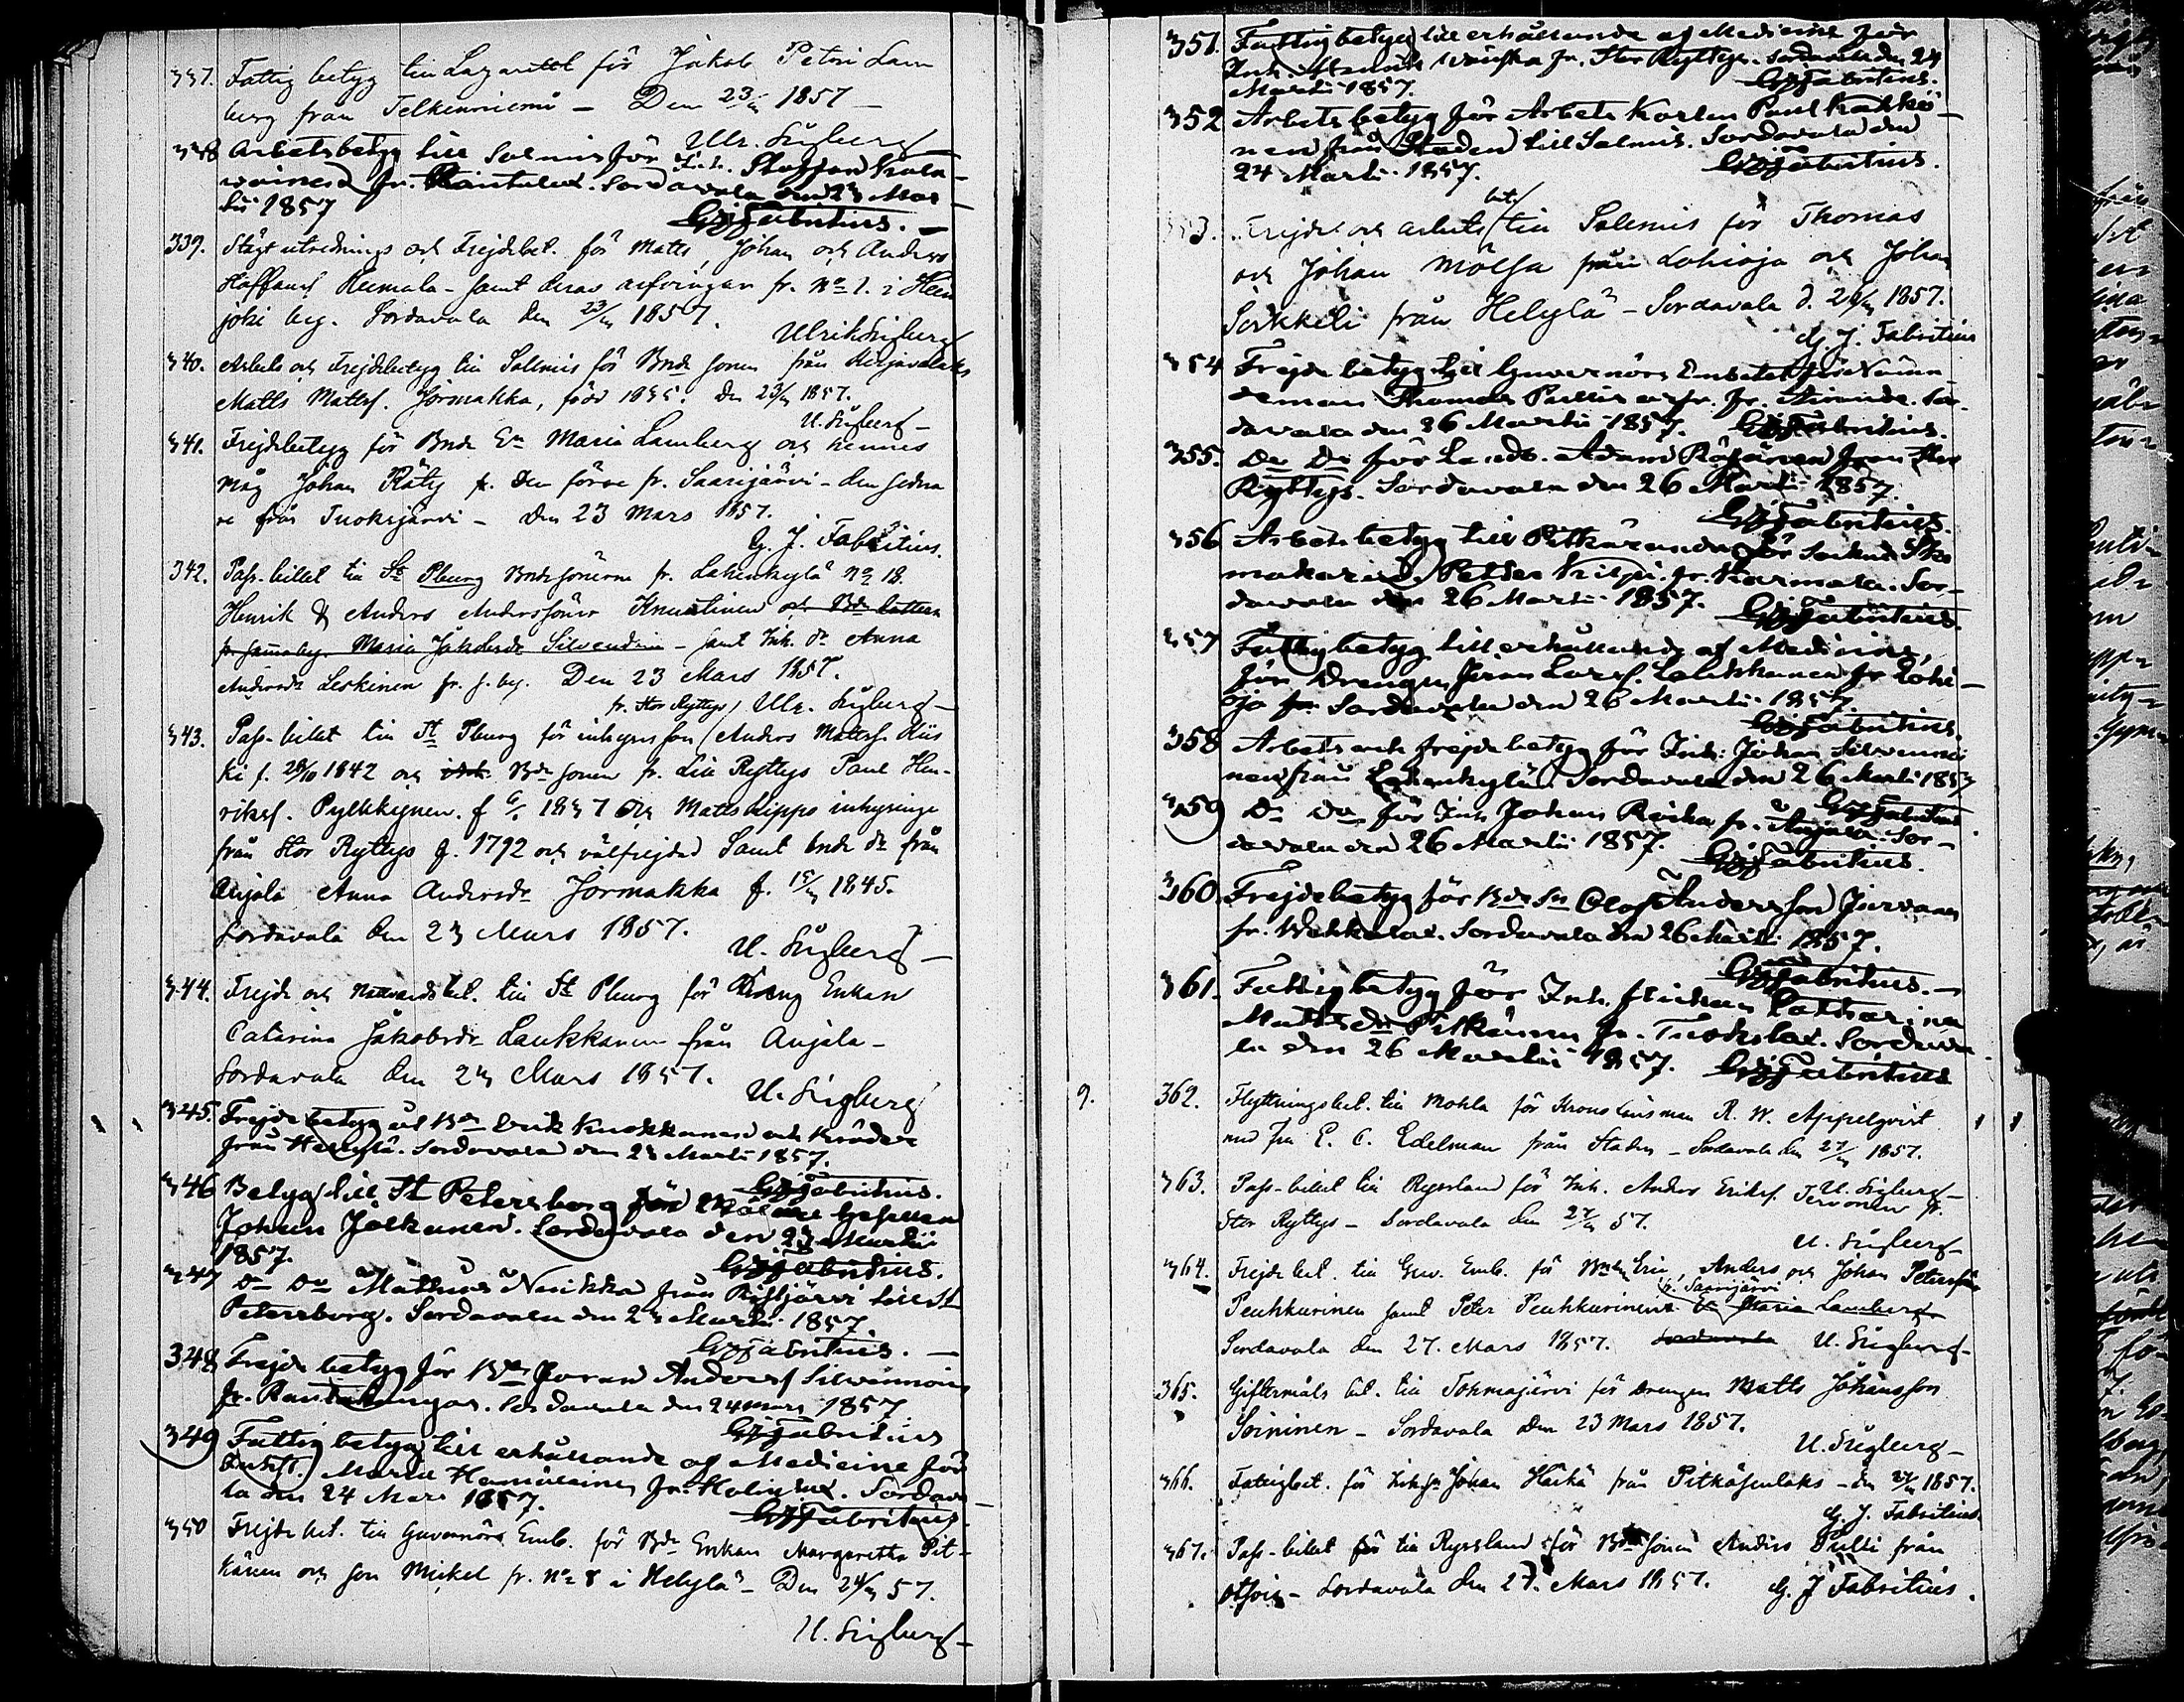 337. Fattig betyg till Lazarettet för Jakob Petri Lam
berg från Telkenniemi – Den 23/3 1857 –
Ulr. Sirgberg
338 Arbetsbetyg till Salmis för Inh. Staffan
fr. Rantulax. Sordavala den 23 Mar
tii 1857
G J Fabritius. –
339. Stägt utrednings och Frejdebet. för Matts, Johan och Anders
Reemala – samt deras arfvingar fr. No 1. i
joki by. Sordavala den 23/3 1857.
Ulrik Sirgberg
340. Arbets och Frejdebetyg till Salmis för Bnde sonen från Kirjavalaks
Matts Mattsf. Jormakka, född 1835. Den 23/3 1857.
U. Sirgberg –
341. Frejdebetyg för Bnde Ea Maria Lamberg och hennes
måg Johan Räty fr. den förre fr. Saarijärvi – den sedna
re från Tuoksjärvi – Den 23 Mars 1857.
G. J. Fabritius.
342. Pass-billet till St Pburg Bndesönerne fr. Lahenkylä No 18.
Henrik & Anders Anderssöner Knuutinen och Bde dottern
fr samma by Maria Jakobsdr Silvendin – samt Inh. dr Anna
Andersdr Leskinen fr. s. by. Den 23 Mars 1857.
fr. Stor Ryttys / Ulr. Sirgberg –
343. Pass-billet till St Pburg för inhyses son / Anders Mattsf. Kiis
ki f. 28/10 1842 och Bde sonen fr. Lill Ryttys Paul Hen-
riksf. Pylkkynen. f. 1837 och Matts Kippo inhysinge
från Stor Ryttys f. 1792 och välfrejdad Samt bnde dr från
Anjala Anna Andersdr Jormakka f. 15/3 1845.
Sordavala den 23 Mars 1857.
U. Sirgberg –
344. Frejde och Nattvards bet. till St Pburg för Dreng Enkan
Catarina Jakobsdr Laukkanen från Anjala –
Sordavala den 23 Mars 1857.
U. Sirgberg
345. Frejde betyg åt Bde Erik Kuokkanen och bröder
från Helylä. Sordavala den 23 Martii 1857.
G J Fabritius.
346 Betyg till St Petersborg för Målare Gesellen
Johan Jälkänen. Sordavala den 23 Martii
1857.
G J Fabritius.
347 Do Do Mathias Nuikka från Ristjärvi till St
Petersborg. Sordavala den 23 Martii 1857
G J Fabritius. –
348 Frejde betyg för Bde Göran Andersf Silvennoin
fr. Rantakangas. Sordavala den 24 mars 1857
G J Fabritius
349 Fattig betyg till erhållande af Medicine för
Maria Hämäläinen fr. Sordava
la den 24 Mars 1857.
G J Fabritius.
350 Frejde bet. till Guvernörs Emb. för Bde Enkan Margaretha Pit-
känen och son Mickel fr. No 8 i Helylä – Den 24/3 57.
U. Sirgberg –
351. Fattigbetyg till erhållande af Medicine för
Inh. fr. Stor Ryttys. Sordavala den 24
Martii 1857.
G J Fabritius.
352 Arbets betyg för Arbets Karlen Paul Kakko-
nen från Staden till Salmis. Sordavala den
24 Martii 1857.
G J Fabritius.
353. Frejde och arbets / bet. till Salmis för Thomas
och Johan Mölsa från Lohioja och Johan
Sirkkeli från Helylä – Sordavala d. 24/3 1857.
G. J. Fabritius
354 Frejde betyg till Guvernörs Embetet för Nämn-
deman Thomas fr. Sor-
davala den 26 Martii 1857.
G J Fabritius.
355. Do Do för Landb. Adam från Stor
Ryttys. Sordavala den 26 Martii 1857.
G J Fabritius.
356 Arbets betyg till Pitkäranda för Sockne Sko
makaren Petter Kilpi fr. Karmala. Sor-
davala den 26 Martii 1857.
G J Fabritius.
357 Fattig betyg till erhållande af Medicine,
för Drengen Göran Larsf. fr Lohi-
oja fr Sordavala den 26 Martii 1857.
G J Fabritius.
358 Arbets och frejde betyg för Inh: Johan Silvennoi
nen från Lahenkylä. Sordavala den 26 Martii 1857
G J Fabritius
359 Do Do för Inh Johan Reika fr. Anjala. Sor-
davala den 26 Martii 1857.
G J Fabritius.
360. Frejdebetyg för Bde Sn Olof Andersson
fr. Wakkolax. Sordavala den 26 Martii 1857.
G J Fabritius. –
361. Fattigbetyg för Inh. flickan Catharina
Mattsdr Pitkänen fr. Tuokslax. Sordava
la den 26 Martii 1857.
G J Fabritius
9. 362. Flyttningsbet. till Mohla för Krono länsman R. W. Appelqvist
med fru E. C. Edelman från Staden – Sordavala den 27/3 1857.
U. Sirgberg –
363. Pass-billet till Ryssland för Inh. Anders Eriksf. Tervonen fr.
Stor Ryttys – Sordavala den 27/3 57.
U. Sirgberg –
364. Frejde bet. till Guv. Emb. för Bnde Eric, Anders och Johan Peterssöner
fr. Saarijärvi
Penhkurinen samt Peter Penhkurinens Ea Maria Lamberg
Sordavala den 27. Mars 1857. Sordavala U. Sirgberg –
365. Giftermåls bet. till Tohmajärvi för Drengen Matts Johansson
Soininen – Sordavala den 23 Mars 1857.
U. Sirgberg –
366. Fattigbet. för Inhsn Johan Härkä från Pitkäsenlaks – den 27/3 1857.
G. J. Fabritius.
367. Pass-billet för till Ryssland för Bde sonen Anders Pulli från
Otsois – Sordavala den 27. Mars 1857. G. J Fabritius.